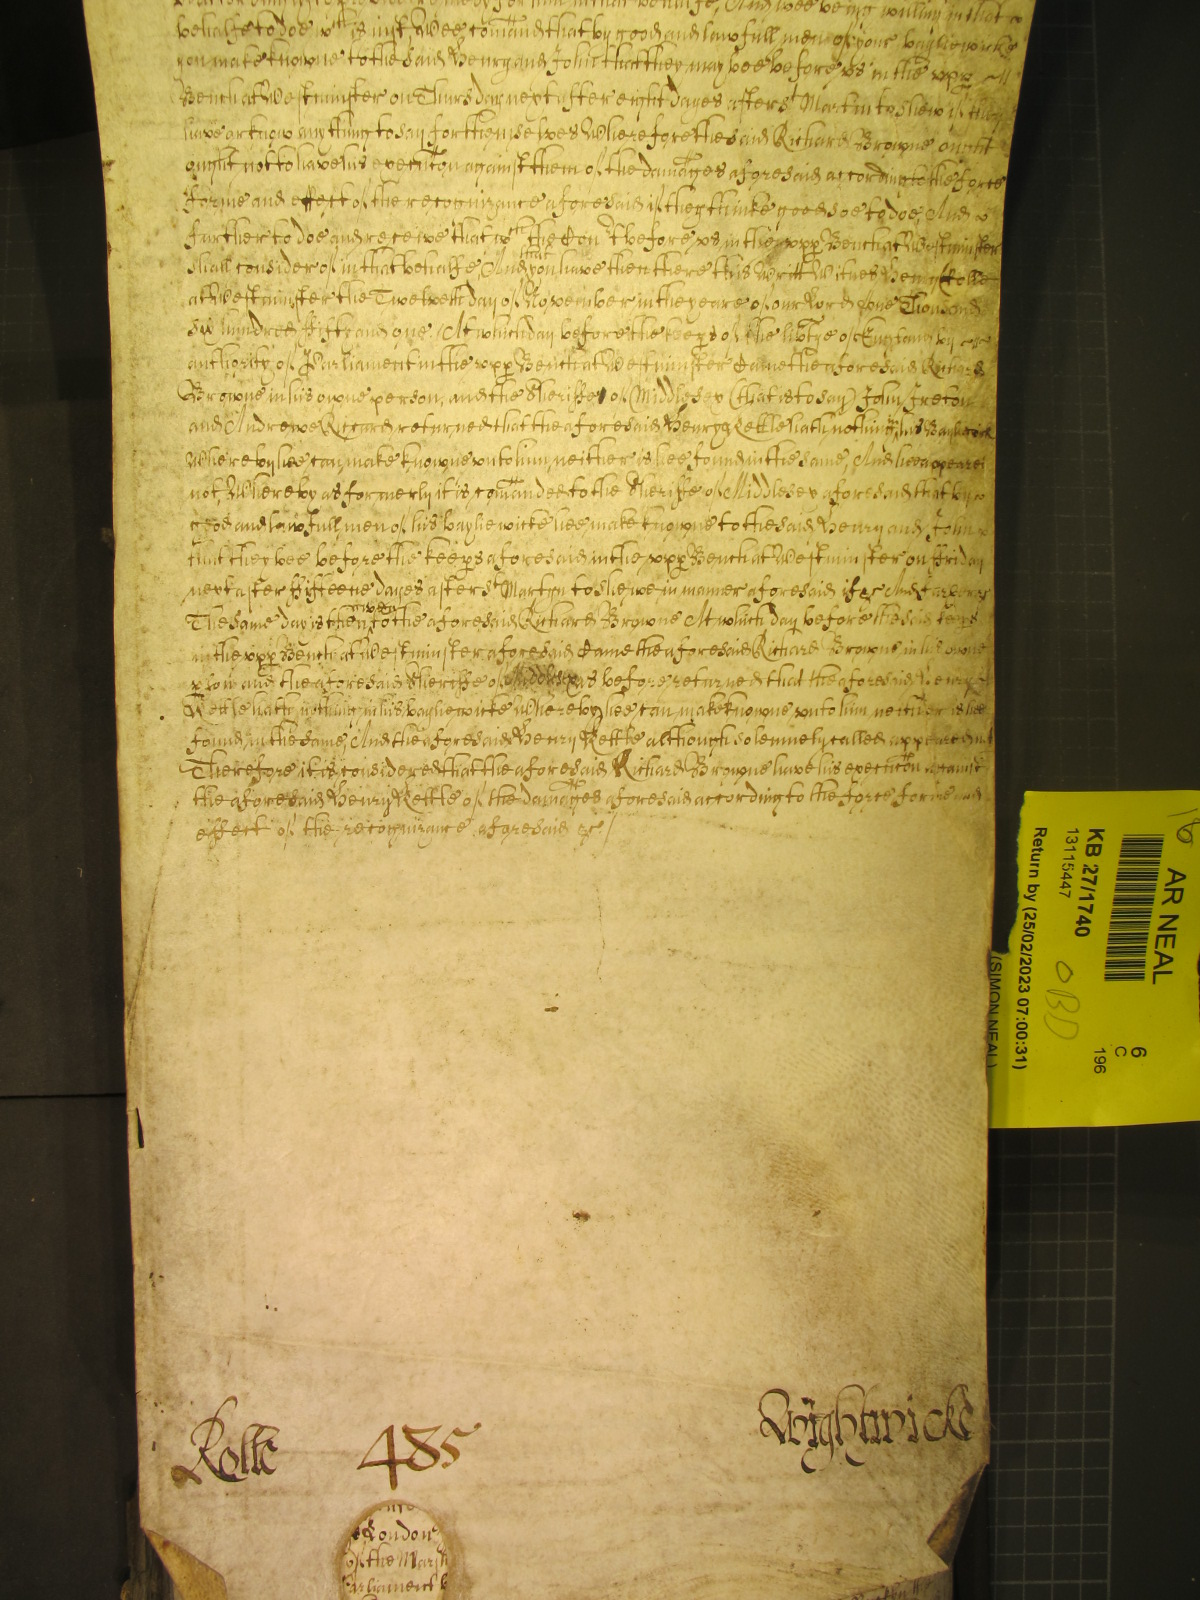 behalfe to doe wch is iust Wee comand that by good and lawfull men of your bayliewicke
you make knowne to the said Henry and John that they may bee before us in the upp
Bench at Westminster on Thursday next after eight dayes of St Martin to shew if they
have or know any thing to say for themselves Wherefore the said Richard Browne ought
ought not to have his execucon against them of the damages aforesaid according to the force
forme and effect of the recognizance aforesaid if they thinke good soe to doe, And
further to doe and receive that wch the Court before us in the upp Bench at Westminster
shall consider of in that behalfe, And that you have then there this Writt Witnes Henry Rolle
at Westminster the Twelveth day of November in the yeare of our Lord One Thousand
six hundred fifty and one, At which day before the keeps of the libtye of England by
authority of Parliament in the upp Bench at Westminster Came the aforesaid Richard
Browne in his owne person, and the Sheriffe of Middlesex (that is to say) John
and Andrewe Riccard returned that the aforesaid Henry Kettle hath nothing in his Bayliewick
Whereby hee can make knowne unto him, neither is hee found in the same, And hee appeares
not, Whereby as formerly it is comanded to the Sheriffe of Middlesex aforesaid that by
good and lawfull men of his bayliewicke hee make knowne to the said Henry and John
that they bee before the keeps aforesaid in the upp Bench at Westminster on Friday
next after fifteene dayes of St Martyn to shewe in manner aforesaid if &c And farther
The same day is then given to the aforesaid Richard Browne At which day before the said keeps
in the upp Bench at Westminster aforesaid Came the aforesaid Richard Browne in his owne
pson and the aforesaid Sheriffe of Middlesex as before returned that the aforesaid Henry
Kettle hath nothing in his bayliewicke Whereby hee can make knowne unto him neither is hee
found in the same, And the aforesaid Henry Kettle although solemnely called appeared not
Therefore it is considered that the aforesaid Richard Browne have his execucon against
the aforesaid Henry Kettle of the damages aforesaid according to the force forme and
effect of the recognizance aforesaid &c/
Rolle 485 Wightwicke
London
of the
Parliament
16
AR NEAL
KB 27/1740
13115447
Return by (25/02/2023 07:00:31)
OBD
6
C
196
(SIMON NEAL)